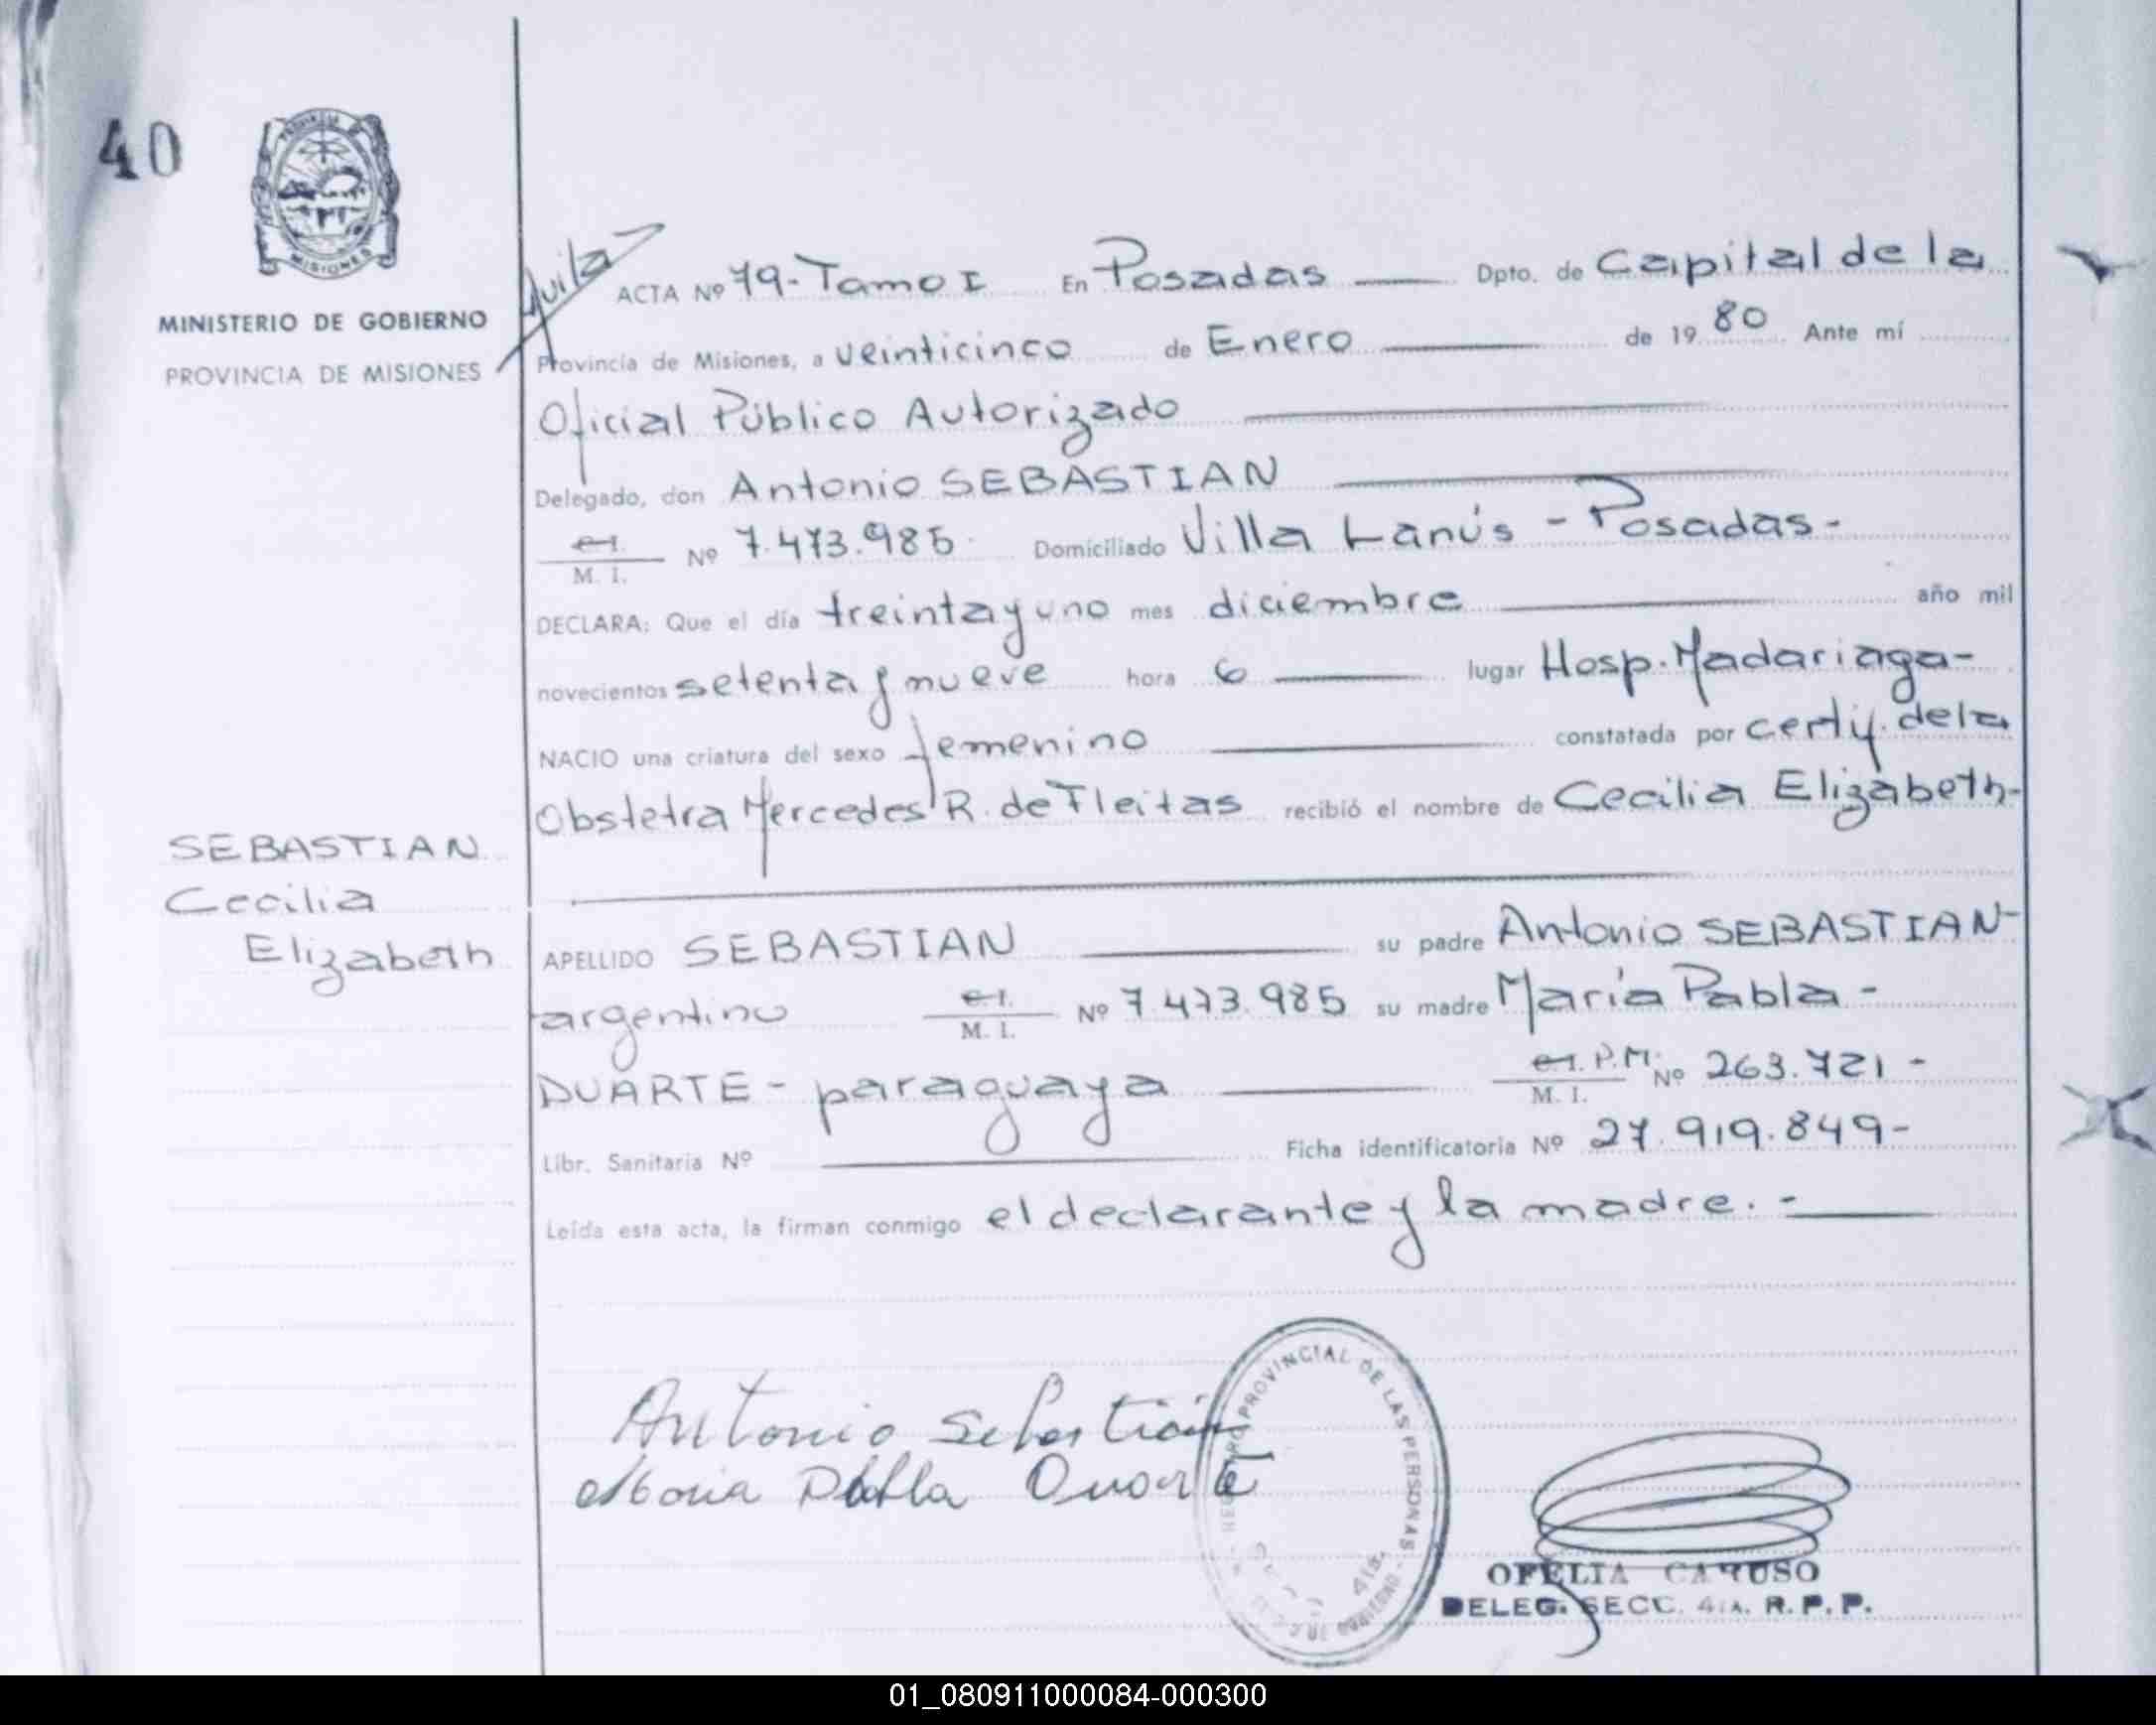 40
PROVINCIA DE
MISIONES
MINISTERIO DE GOBIERNO
PROVINCIA DE MISIONES
Avila
ACTA Nº 79-Tomo I En Posadas Dpto. de Capital de la
Provincia de Misiones, a veinticinco de Enero de 1980 Ante mí
Oficial Público Autorizado
Delegado, don Antonio SEBASTIAN
C.I.
M. I. Nº 7.473.985 Domiciliado Villa Lanús - Posadas-
DECLARA: Que el día treinta y uno mes diciembre año mil
novecientos setenta y nueve hora 6 lugar Hosp. Madariaga-
NACIO una criatura del sexo femenino constatada por certif. de la
Obstetra Mercedes R. de Fleitas recibió el nombre de Cecilia Elizabeth-
SEBASTIAN
Cecilia
Elizabeth
APELLIDO SEBASTIAN su padre Antonio SEBASTIAN-
argentino C.I. M. I. Nº 7.473.985 su madre María Pabla-
DUARTE- paraguaya C.I. P.M. M. I. Nº 263.721-
Libr. Sanitaria Nº Ficha identificatoria Nº 27.919.849-
Leída esta acta, la firman conmigo el declarante y la madre.-
Antonio Sebastián
Maria Pabla Duarte
PROVINCIAL DE LAS PERSONAS
4ta.
OFELIA CARUSO
DELEG. SECC. 4ta. R.P.P.
01_080911000084-000300